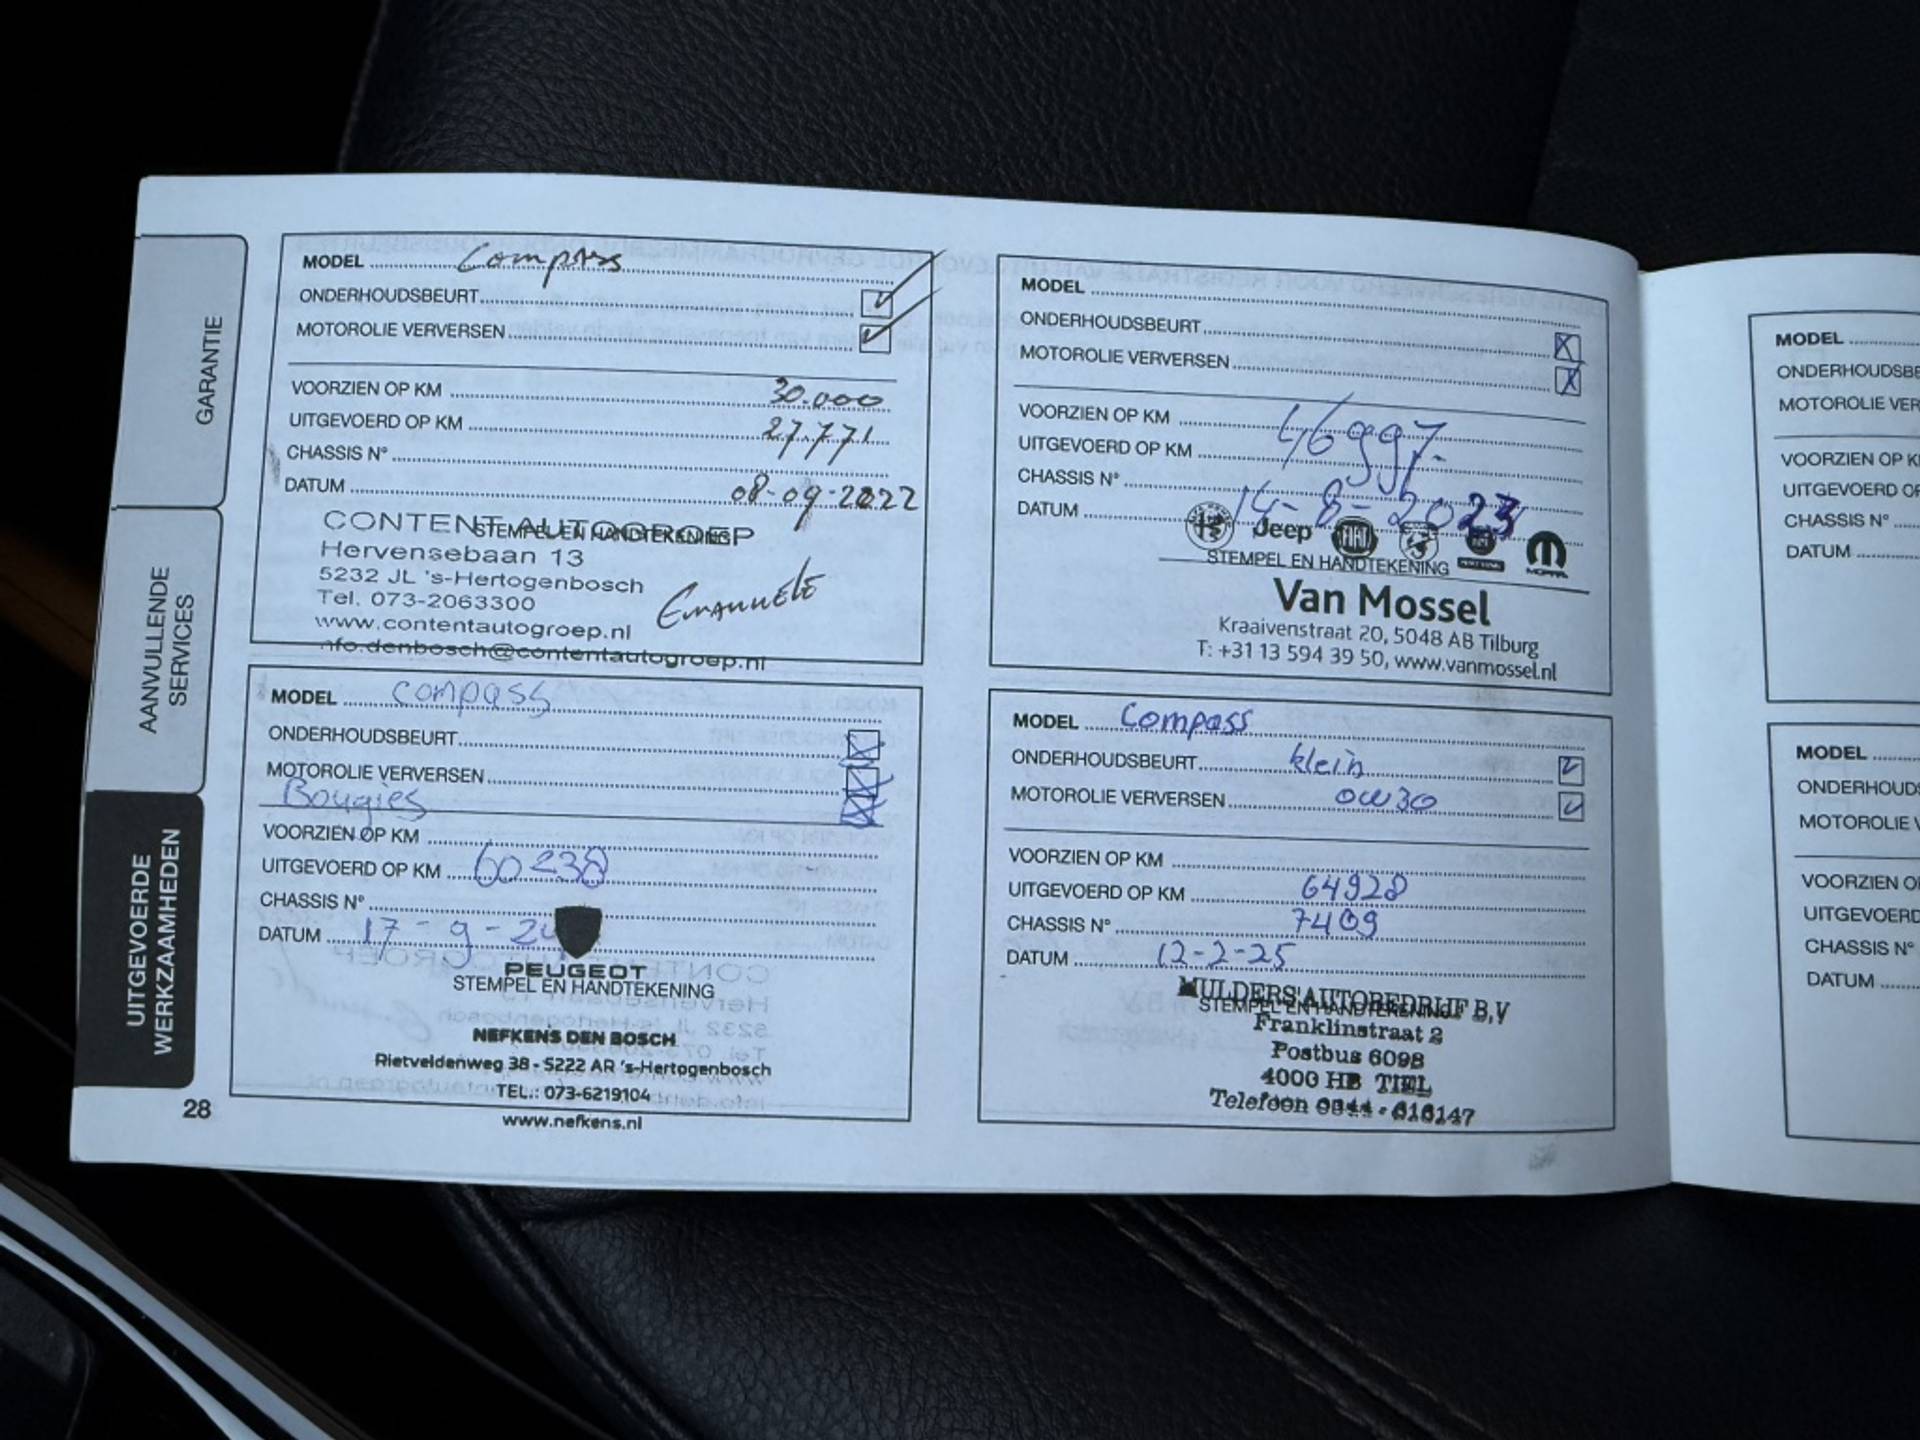 GARANTIE
AANVULLENDE
SERVICES
UITGEVOERDE
WERKZAAMHEDEN
28
MODEL Compass
ONDERHOUDSBEURT
MOTOROLIE VERVERSEN
VOORZIEN OP KM 30.000
UITGEVOERD OP KM 27.771
CHASSIS N°
DATUM 08-09-2022
STEMPEL EN HANDTEKENING
CONTENT AUTOGROEP
Hervensebaan 13
5232 JL 's-Hertogenbosch
Tel. 073-2063300
www.contentautogroep.nl
nfo.denbosch@contentautogroep.nl
Emanuele
MODEL
ONDERHOUDSBEURT
MOTOROLIE VERVERSEN
VOORZIEN OP KM
UITGEVOERD OP KM 46997
CHASSIS N°
DATUM 14-8-2023
Jeep FIAT MOPAR
STEMPEL EN HANDTEKENING
Van Mossel
Kraaivenstraat 20, 5048 AB Tilburg
T: +31 13 594 39 50, www.vanmossel.nl
MODEL compass
ONDERHOUDSBEURT
MOTOROLIE VERVERSEN
Bougies
VOORZIEN OP KM
UITGEVOERD OP KM 60238
CHASSIS N°
DATUM 17-9-24
PEUGEOT
STEMPEL EN HANDTEKENING
NEFKENS DEN BOSCH
Rietveldenweg 38 - 5222 AR 's-Hertogenbosch
TEL.: 073-6219104
www.nefkens.nl
MODEL Compass
ONDERHOUDSBEURT klein
MOTOROLIE VERVERSEN 0W30
VOORZIEN OP KM
UITGEVOERD OP KM 64928
CHASSIS N° 7409
DATUM 12-2-25
STEMPEL EN HANDTEKENING
MULDERS' AUTOBEDRIJF B.V
Franklinstraat 2
Postbus 6098
4000 HB TIEL
Telefoon 0344 - 616147
MODEL
ONDERHOUDSBE
MOTOROLIE VER
VOORZIEN OP K
UITGEVOERD OP
CHASSIS N°
DATUM
MODEL
ONDERHOUDS
MOTOROLIE V
VOORZIEN O
UITGEVOERD
CHASSIS N°
DATUM